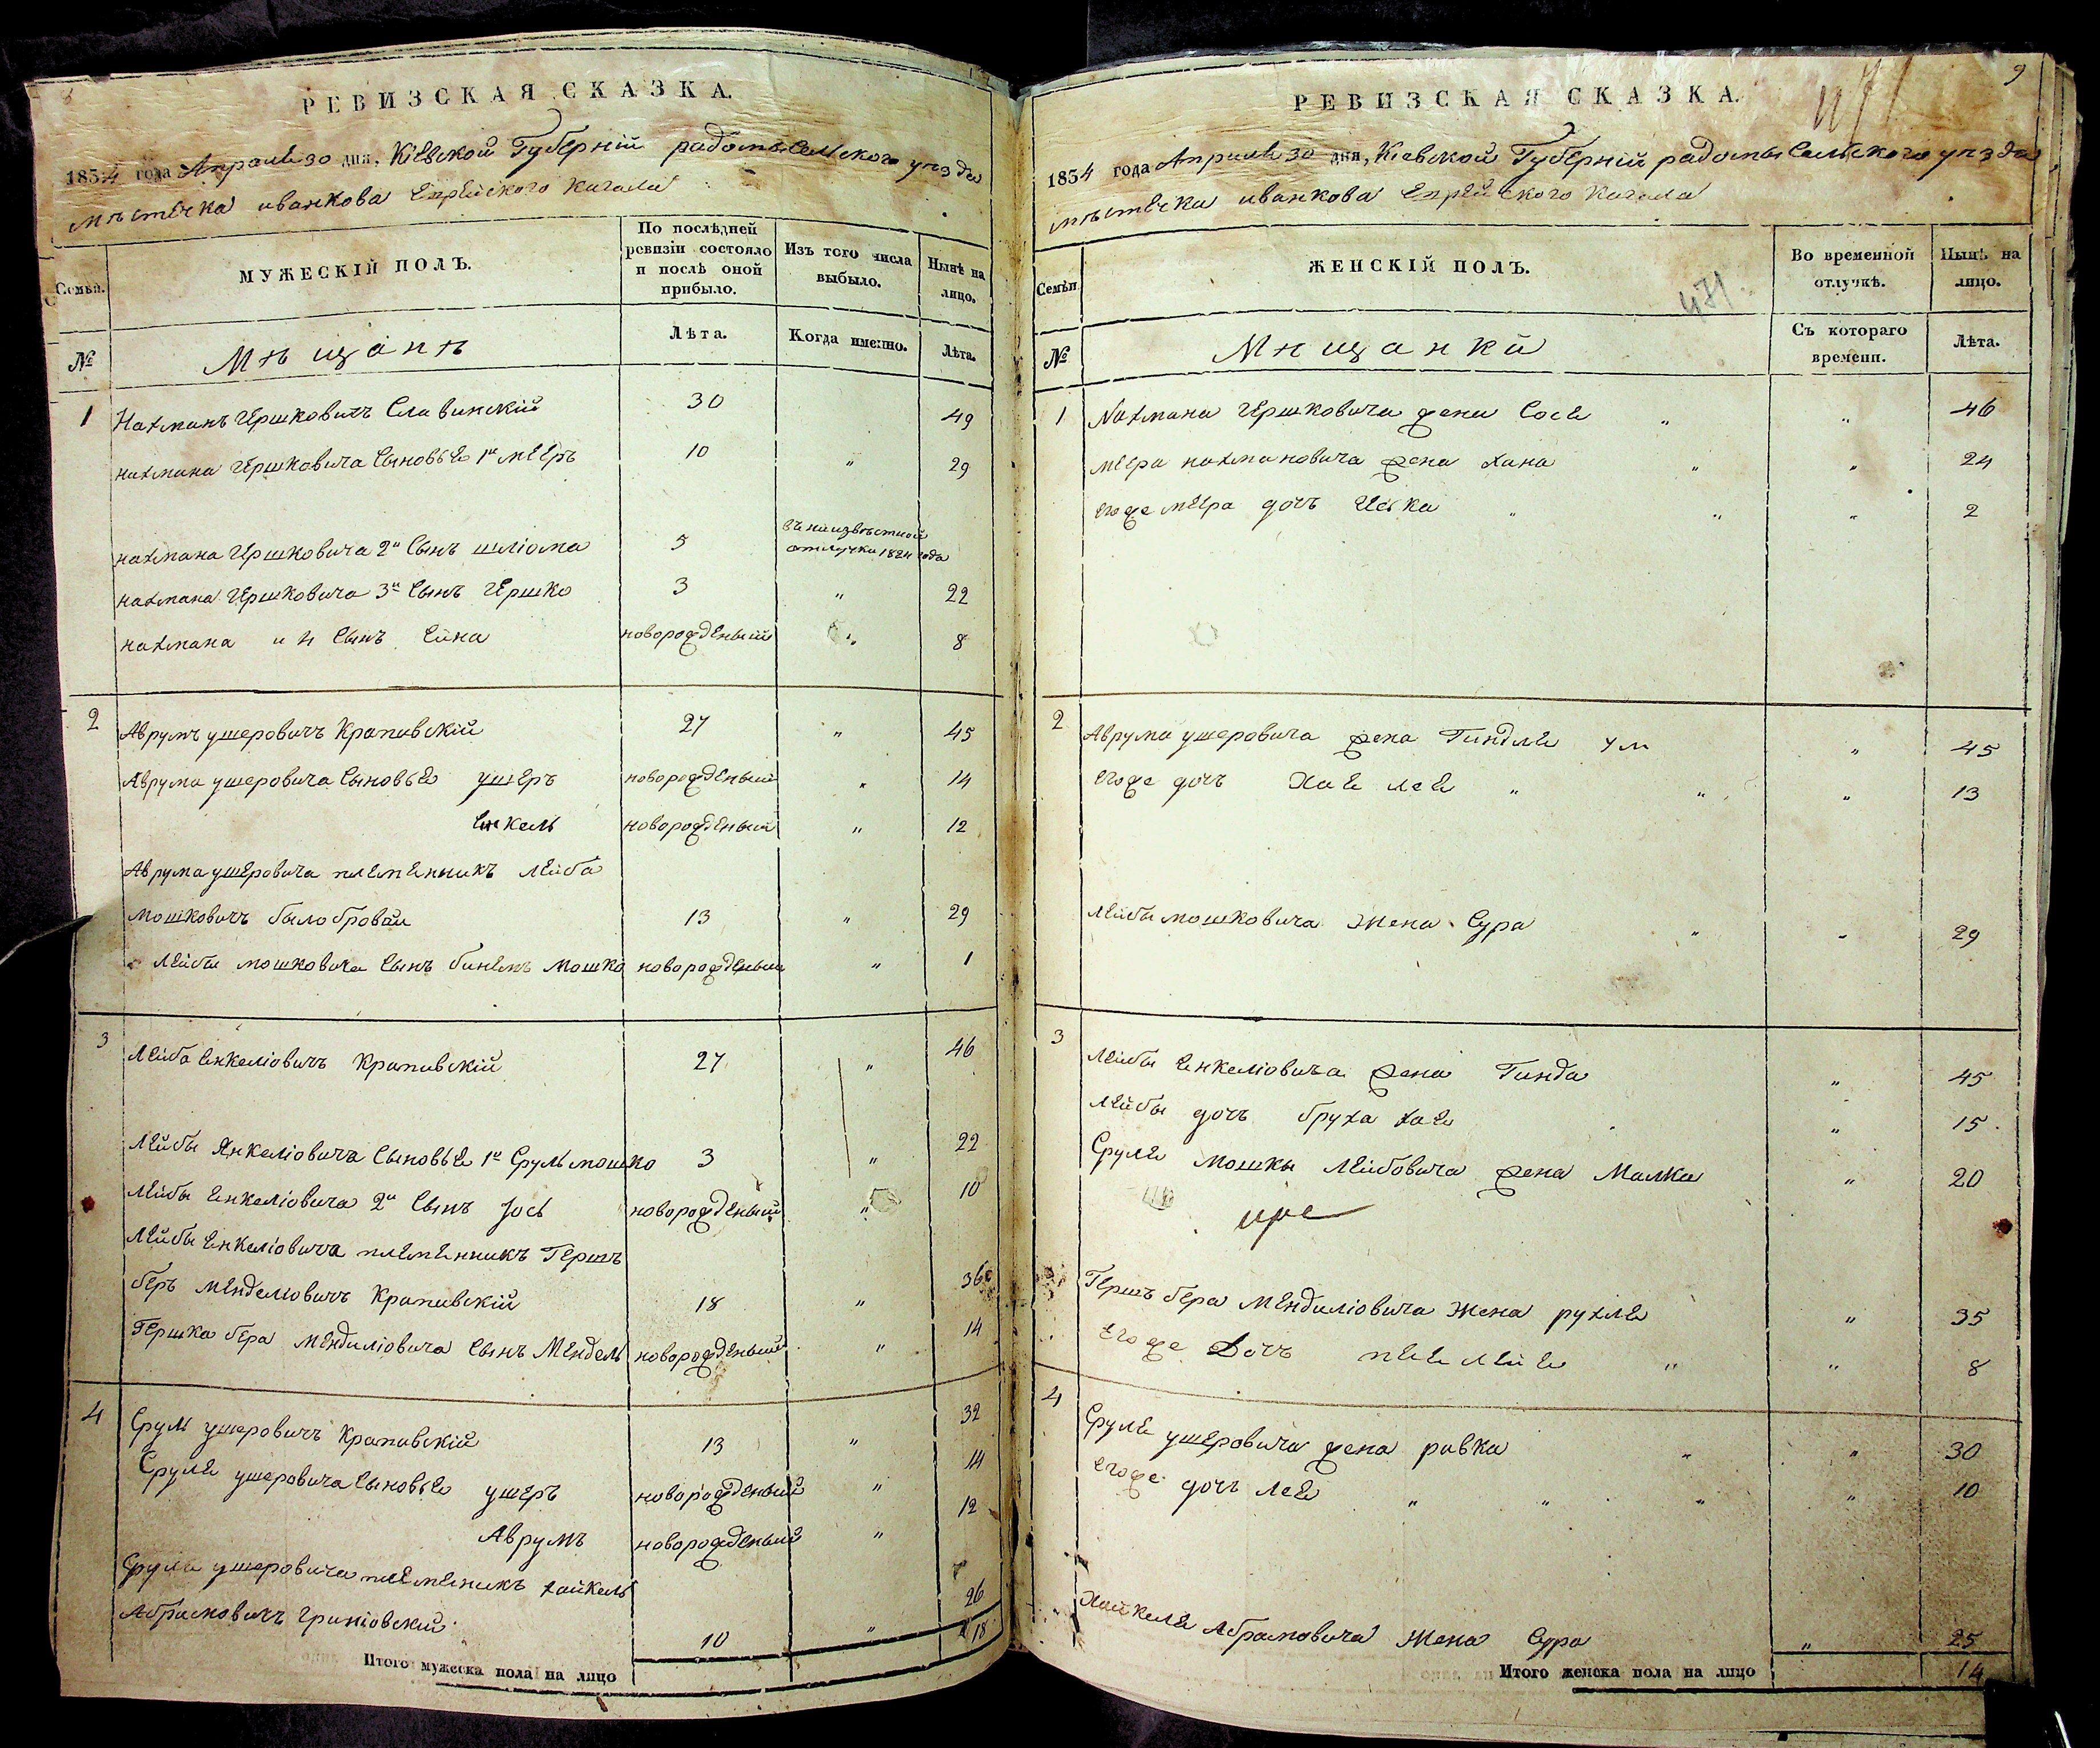 РЕВИЗСКАЯ СКАЗКА.
1834 года Апреля 30 дня, Кіевской Губерній радомысельского уезда
мѣстечка иванкова Еврейского Кагала
Семьи.
МУЖЕСКІЙ ПОЛЪ.
По послѣдней ревизіи состояло и послѣ оной прибыло.
Изъ того числа выбыло.
Нынѣ на лицо.
№
Мѣщанѣ
Лѣта.
Когда именно.
Лѣта.
1 Нахманъ Гершковичъ Славинскій 30 49
нахмана Гершковича Сыновье 1й мееръ 10 " 29
нахмана Гершковича 2й Сынъ шліома 5 въ неизвѣстной отлучки 1824 года
нахмана Гершковича 3й Сынъ Гершко 3 " 22
нахмана и 4 Сынъ новорожденый " 8
2 Аврумъ ушеровичъ Крапивскій 27 " 45
Аврума ушеровича Сыновье ушеръ новорожденый " 14
Енкель новорожденый " 12
Аврума ушеровича племенникъ лейба
мошковичъ 13 " 29
лейбы мошковича Сынъ мошко новорожденый " 1
3 лейба Енкеліовичъ Крапивскій 27 " 46
лейбы Янкеліовича Сыновье 1й Сруль мошко 3 " 22
лейбы Енкеліовича 2й Сынъ Іось новорожденый " 10
лейбы Енкеліовича племенникъ Гершъ
беръ менделіовичъ Крапивскій 18 " 36
Гершка бера мендиліовича Сынъ Мендель новорожденый " 14
4 Сруль ушеровичъ Крапивскій 13 " 32
Сруля ушеровича Сыновье ушеръ новорожденый " 14
Аврумъ новорожденый " 12
Сруля ушеровича племеникъ хайкель
Абрамовичъ 10 " 26
Итого мужеска пола на лицо 18
9
РЕВИЗСКАЯ СКАЗКА.
1834 года Апреля 30 дня, Кіевской Губерній радомысельского уезда
мѣстечка иванкова Еврейского Кагала
471
Семьи
ЖЕНСКІЙ ПОЛЪ.
Во временной отлучкѣ.
Нынѣ на лицо.
№
Мѣщанки
Съ котораго времени.
Лѣта.
1 Нахмана Гершковича жена Сося " " 46
меера нахмановича жена хана " " 24
егоже меера дочъ " " " 2
2 Аврума ушеровича жена Гиндля " 45
егоже дочъ Хая лея " " " 13
лейбы мошковича жена Сура " " 29
3 лейбы Енкеліовича жена Гинда " 45
лейбы дочъ бруха хая " 15
Сруля мошки лейбовича жена Малка " 20
Гершъ бера мендиліовича жена рухля " 35
егоже дочъ " " 8
4 Сруля ушеровича жена ривка " " 30
егоже дочъ лея " " " " 10
Хайкеля Абрамовича жена Сура " 25
Итого женска пола на лицо 14